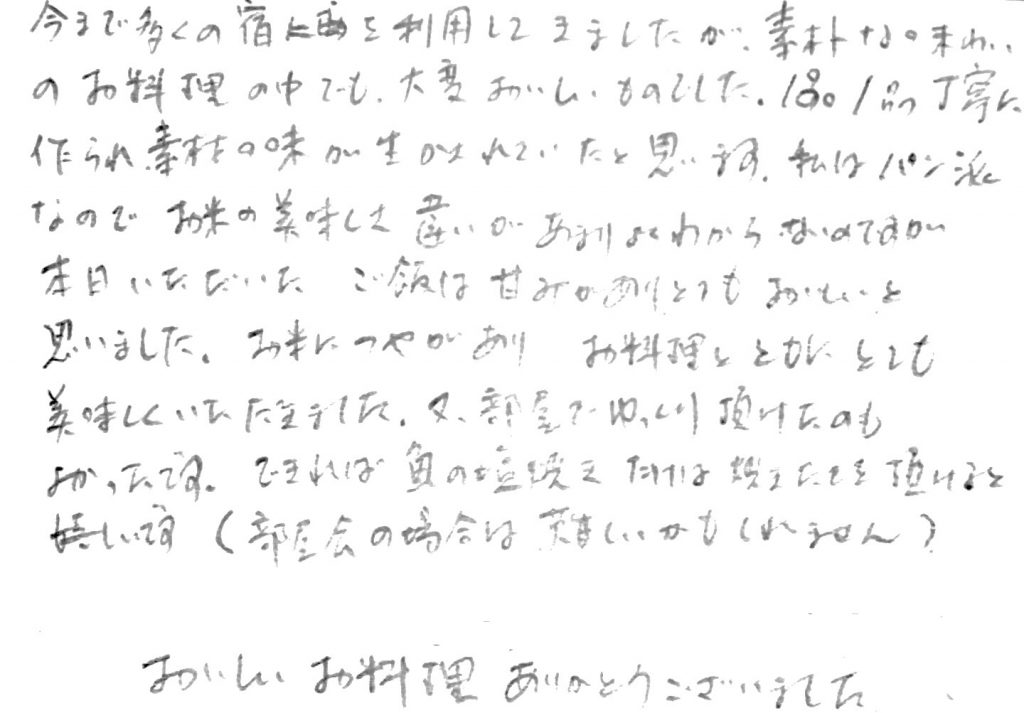 今まで多くの宿を利用してきましたが、素朴な味わい
のお料理の中でも、大変おいしいものでした。1品1品丁寧に
作られ素材の味が生かされていたと思います。私はパン派
なのでお米の美味しさ違いがあまりよくわからないのですが
本日いただいた ご飯は甘みがありとてもおいしいと
思いました。お米につやがあり お料理とともにとても
美味しくいただきました。又、部屋でゆっくり頂けたのも
よかったです。できれば魚の塩焼きだけは焼きたてを頂けると
嬉しいです(部屋食の場合は難しいかもしれません)
おいしいお料理ありがとうございました